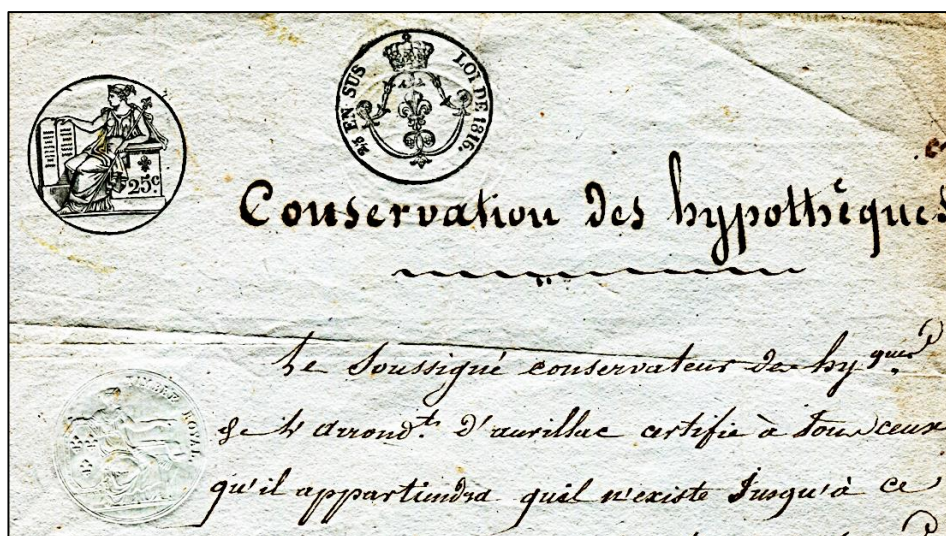 25 EN SUS LOI DE 1816.
25c.
Conservation des hypothèques
Le Soussigné conservateur des hyques
TIMBRE ROYAL
de l'arrondt. d'aurillac certifie à tous ceux
qu'il appartiendra qu'il n'existe Jusqu'à ce